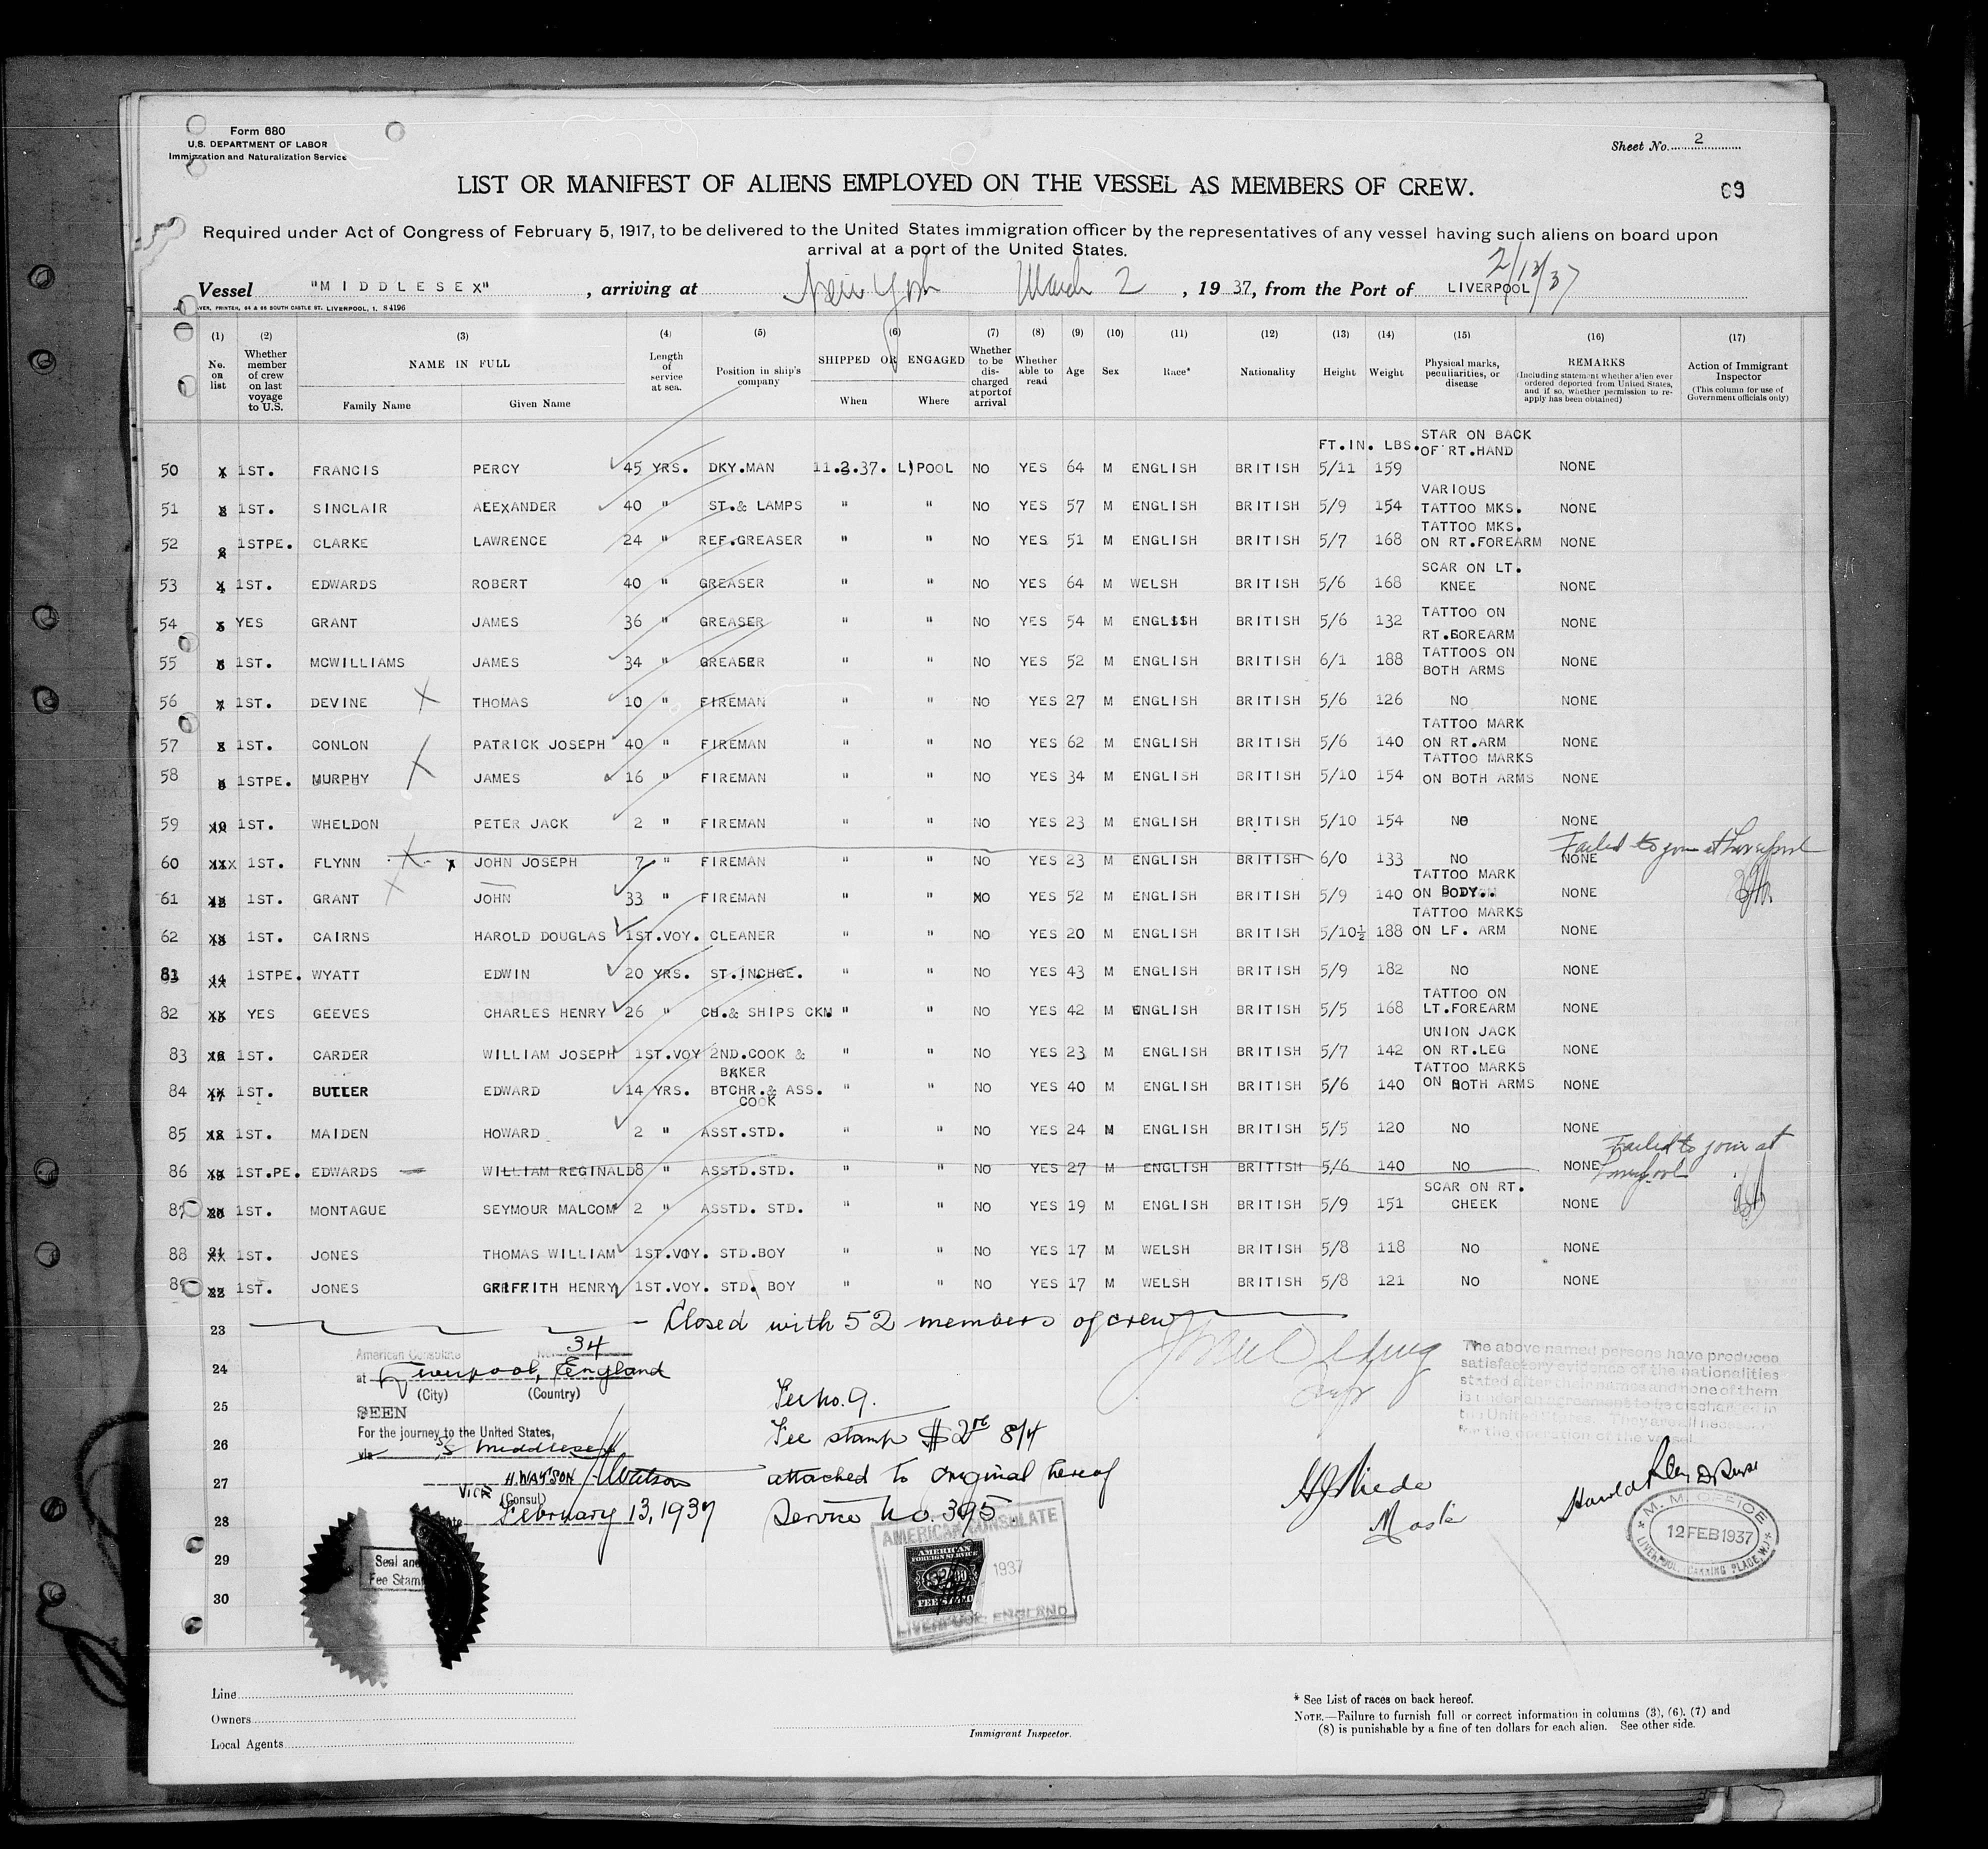 Form 680
U.S. DEPARTMENT OF LABOR
Immigration and Naturalization Service
Sheet No. 2
LIST OR MANIFEST OF ALIENS EMPLOYED ON THE VESSEL AS MEMBERS OF CREW.
69
Required under Act of Congress of February 5, 1917, to be delivered to the United States immigration officer by the representatives of any vessel having such aliens on board upon
arrival at a port of the United States.
2/13/37
Vessel "MIDDLESEX", arriving at New York March 2, 19 37, from the Port of LIVERPOOL
PRINTER, 64 & 66 SOUTH CASTLE ST. LIVERPOOL, 1. 84196
(1) (2) (3) (4) (5) (6) (7) (8) (9) (10) (11) (12) (13) (14) (15) (16) (17)
No. on list
Whether member of crew on last voyage to U.S.
NAME IN FULL
Family Name
Given Name
Length of service at sea.
Position in ship's company
SHIPPED OR ENGAGED
When
Where
Whether to be discharged at port of arrival
Whether able to read
Age
Sex
Race*
Nationality
Height
Weight
Physical marks, peculiarities, or disease
REMARKS
(Including statement whether alien ever ordered deported from United States, and if so, whether permission to re-apply has been obtained)
Action of Immigrant Inspector
(This column for use of Government officials only)
FT.IN. LBS. STAR ON BACK
OF RT.HAND
50 1ST. FRANCIS PERCY 45 YRS. DKY.MAN 11.2.37. L)POOL NO YES 64 M ENGLISH BRITISH 5/11 159 NONE
VARIOUS
51 1ST. SINCLAIR ALEXANDER 40 " ST.& LAMPS " " NO YES 57 M ENGLISH BRITISH 5/9 154 TATTOO MKS. NONE
TATTOO MKS.
52 1STPE. CLARKE LAWRENCE 24 " REF.GREASER " " NO YES 51 M ENGLISH BRITISH 5/7 168 ON RT.FOREARM NONE
SCAR ON LT.
53 4 1ST. EDWARDS ROBERT 40 " GREASER " " NO YES 64 M WELSH BRITISH 5/6 168 KNEE NONE
TATTOO ON
54 YES GRANT JAMES 36 " GREASER " " NO YES 54 M ENGLSSH BRITISH 5/6 132 NONE
RT.FOREARM
55 1ST. MCWILLIAMS JAMES 34 " GREASER " " NO YES 52 M ENGLISH BRITISH 6/1 188 TATTOOS ON NONE
BOTH ARMS
56 1ST. DEVINE X THOMAS 10 " FIREMAN " " NO YES 27 M ENGLISH BRITISH 5/6 126 NO NONE
TATTOO MARK
57 1ST. CONLON PATRICK JOSEPH 40 " FIREMAN " " NO YES 62 M ENGLISH BRITISH 5/6 140 ON RT.ARM NONE
TATTOO MARKS
58 1STPE. MURPHY X JAMES 16 " FIREMAN " " NO YES 34 M ENGLISH BRITISH 5/10 154 ON BOTH ARMS NONE
59 1ST. WHELDON PETER JACK 2 " FIREMAN " " NO YES 23 M ENGLISH BRITISH 5/10 154 NO NONE
Failed to join at Liverpool
60 1ST. FLYNN X x JOHN JOSEPH 7 " FIREMAN " " NO YES 23 M ENGLISH BRITISH 6/0 133 NO NONE
TATTOO MARK
61 1ST. GRANT X JOHN 33 " FIREMAN " " NO YES 52 M ENGLISH BRITISH 5/9 140 ON BODY.. NONE
TATTOO MARKS
62 1ST. CAIRNS HAROLD DOUGLAS 1ST.VOY. CLEANER " " NO YES 20 M ENGLISH BRITISH 5/10½ 188 ON LF. ARM NONE
81 14 1STPE. WYATT EDWIN 20 YRS. ST.INCHGE. " " NO YES 43 M ENGLISH BRITISH 5/9 182 NO NONE
TATTOO ON
82 15 YES GEEVES CHARLES HENRY 26 " CH.& SHIPS CKM " " NO YES 42 M ENGLISH BRITISH 5/5 168 LT.FOREARM NONE
UNION JACK
83 1ST. CARDER WILLIAM JOSEPH 1ST.VOY 2ND.COOK & " " NO YES 23 M ENGLISH BRITISH 5/7 142 ON RT.LEG NONE
BAKER TATTOO MARKS
84 17 1ST. BUTLER EDWARD 14 YRS. BTCHR.& ASS. " " NO YES 40 M ENGLISH BRITISH 5/6 140 ON BOTH ARMS NONE
COOK
85 1ST. MAIDEN HOWARD 2 " ASST.STD. " " NO YES 24 M ENGLISH BRITISH 5/5 120 NO NONE
Failed to join at
86 1ST.PE. EDWARDS WILLIAM REGINALD 8 " ASSTD.STD. " " NO YES 27 M ENGLISH BRITISH 5/6 140 NO NONE Liverpool
SCAR ON RT.
87 20 1ST. MONTAGUE SEYMOUR MALCOM 2 " ASSTD. STD. " " NO YES 19 M ENGLISH BRITISH 5/9 151 CHEEK NONE
88 21 1ST. JONES THOMAS WILLIAM 1ST.VOY. STD.BOY " " NO YES 17 M WELSH BRITISH 5/8 118 NO NONE
89 22 1ST. JONES GRIFFITH HENRY 1ST.VOY. STD. BOY " " NO YES 17 M WELSH BRITISH 5/8 121 NO NONE
23 Closed with 52 members of crew
24
25
26
27
28
29
30
American Consulate No. 34
at Liverpool, England
(City) (Country)
SEEN
For the journey to the United States,
via SS Middlesex
H. WATSON HWatson
Vice (Consul)
Date February 13, 1937
Seal and
Fee Stamp
Tar no. 9.
Fee stamp $2.00 8/4
attached to original hereof
Service No. 395.
AMERICAN CONSULATE
1937
LIVERPOOL ENGLAND
AMERICAN
FOREIGN SERVICE
FEE STAMP
The above named persons have produced
satisfactory evidence of the nationalities
stated after their names and none of them
is under an agreement to be discharged in
the United States. They are all necessary
for the operation of the vessel
M. M. OFFICE
12 FEB 1937
LIVERPOOL, CANNING PLACE, W.
Line
Owners
Local Agents
Immigrant Inspector.
* See List of races on back hereof.
NOTE.—Failure to furnish full or correct information in columns (3), (6), (7) and
(8) is punishable by a fine of ten dollars for each alien. See other side.